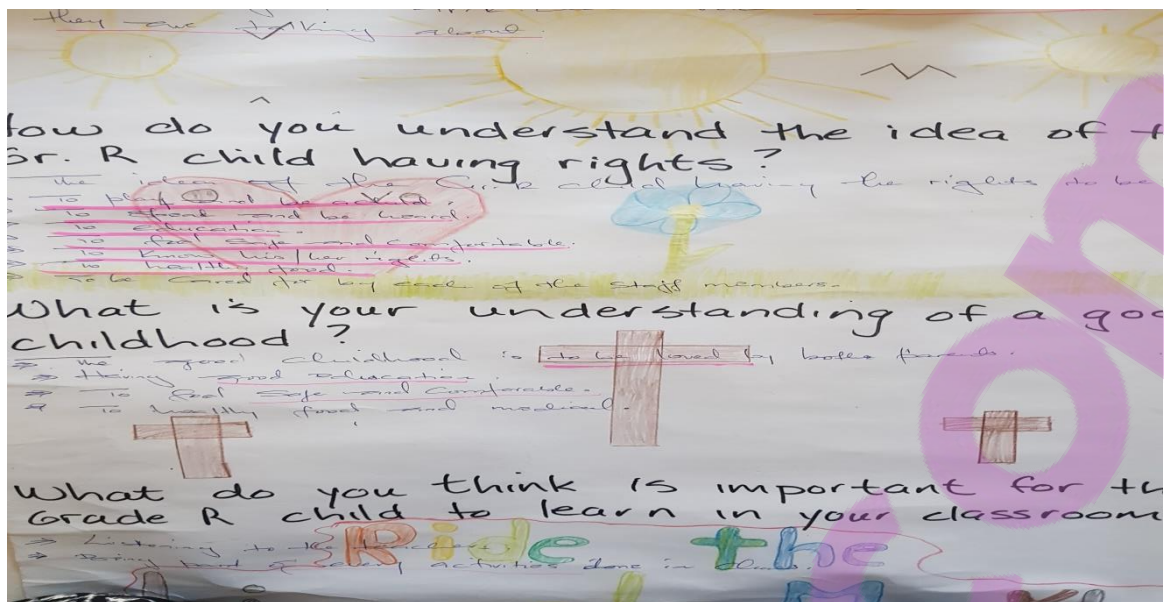 they are talking about.
How do you understand the idea of
Gr. R child having rights?
The idea of the Gr. R child having the rights to be
To play and be a child.
To speak and be heard.
To education.
To feel safe and comfortable.
To know his/her rights.
To healthy food.
To be cared for by each of the staff members.
What is your understanding of a good
childhood?
⇒ The good childhood is to be loved by both parents.
⇒ Having good education.
⇒ To feel safe and comforable.
⇒ To healthy food and medical.
What do you think is important for the
Grade R child to learn in your classroom
⇒ Listening to the teachers.
⇒ Being part of every activities done in class.
Ride the
on